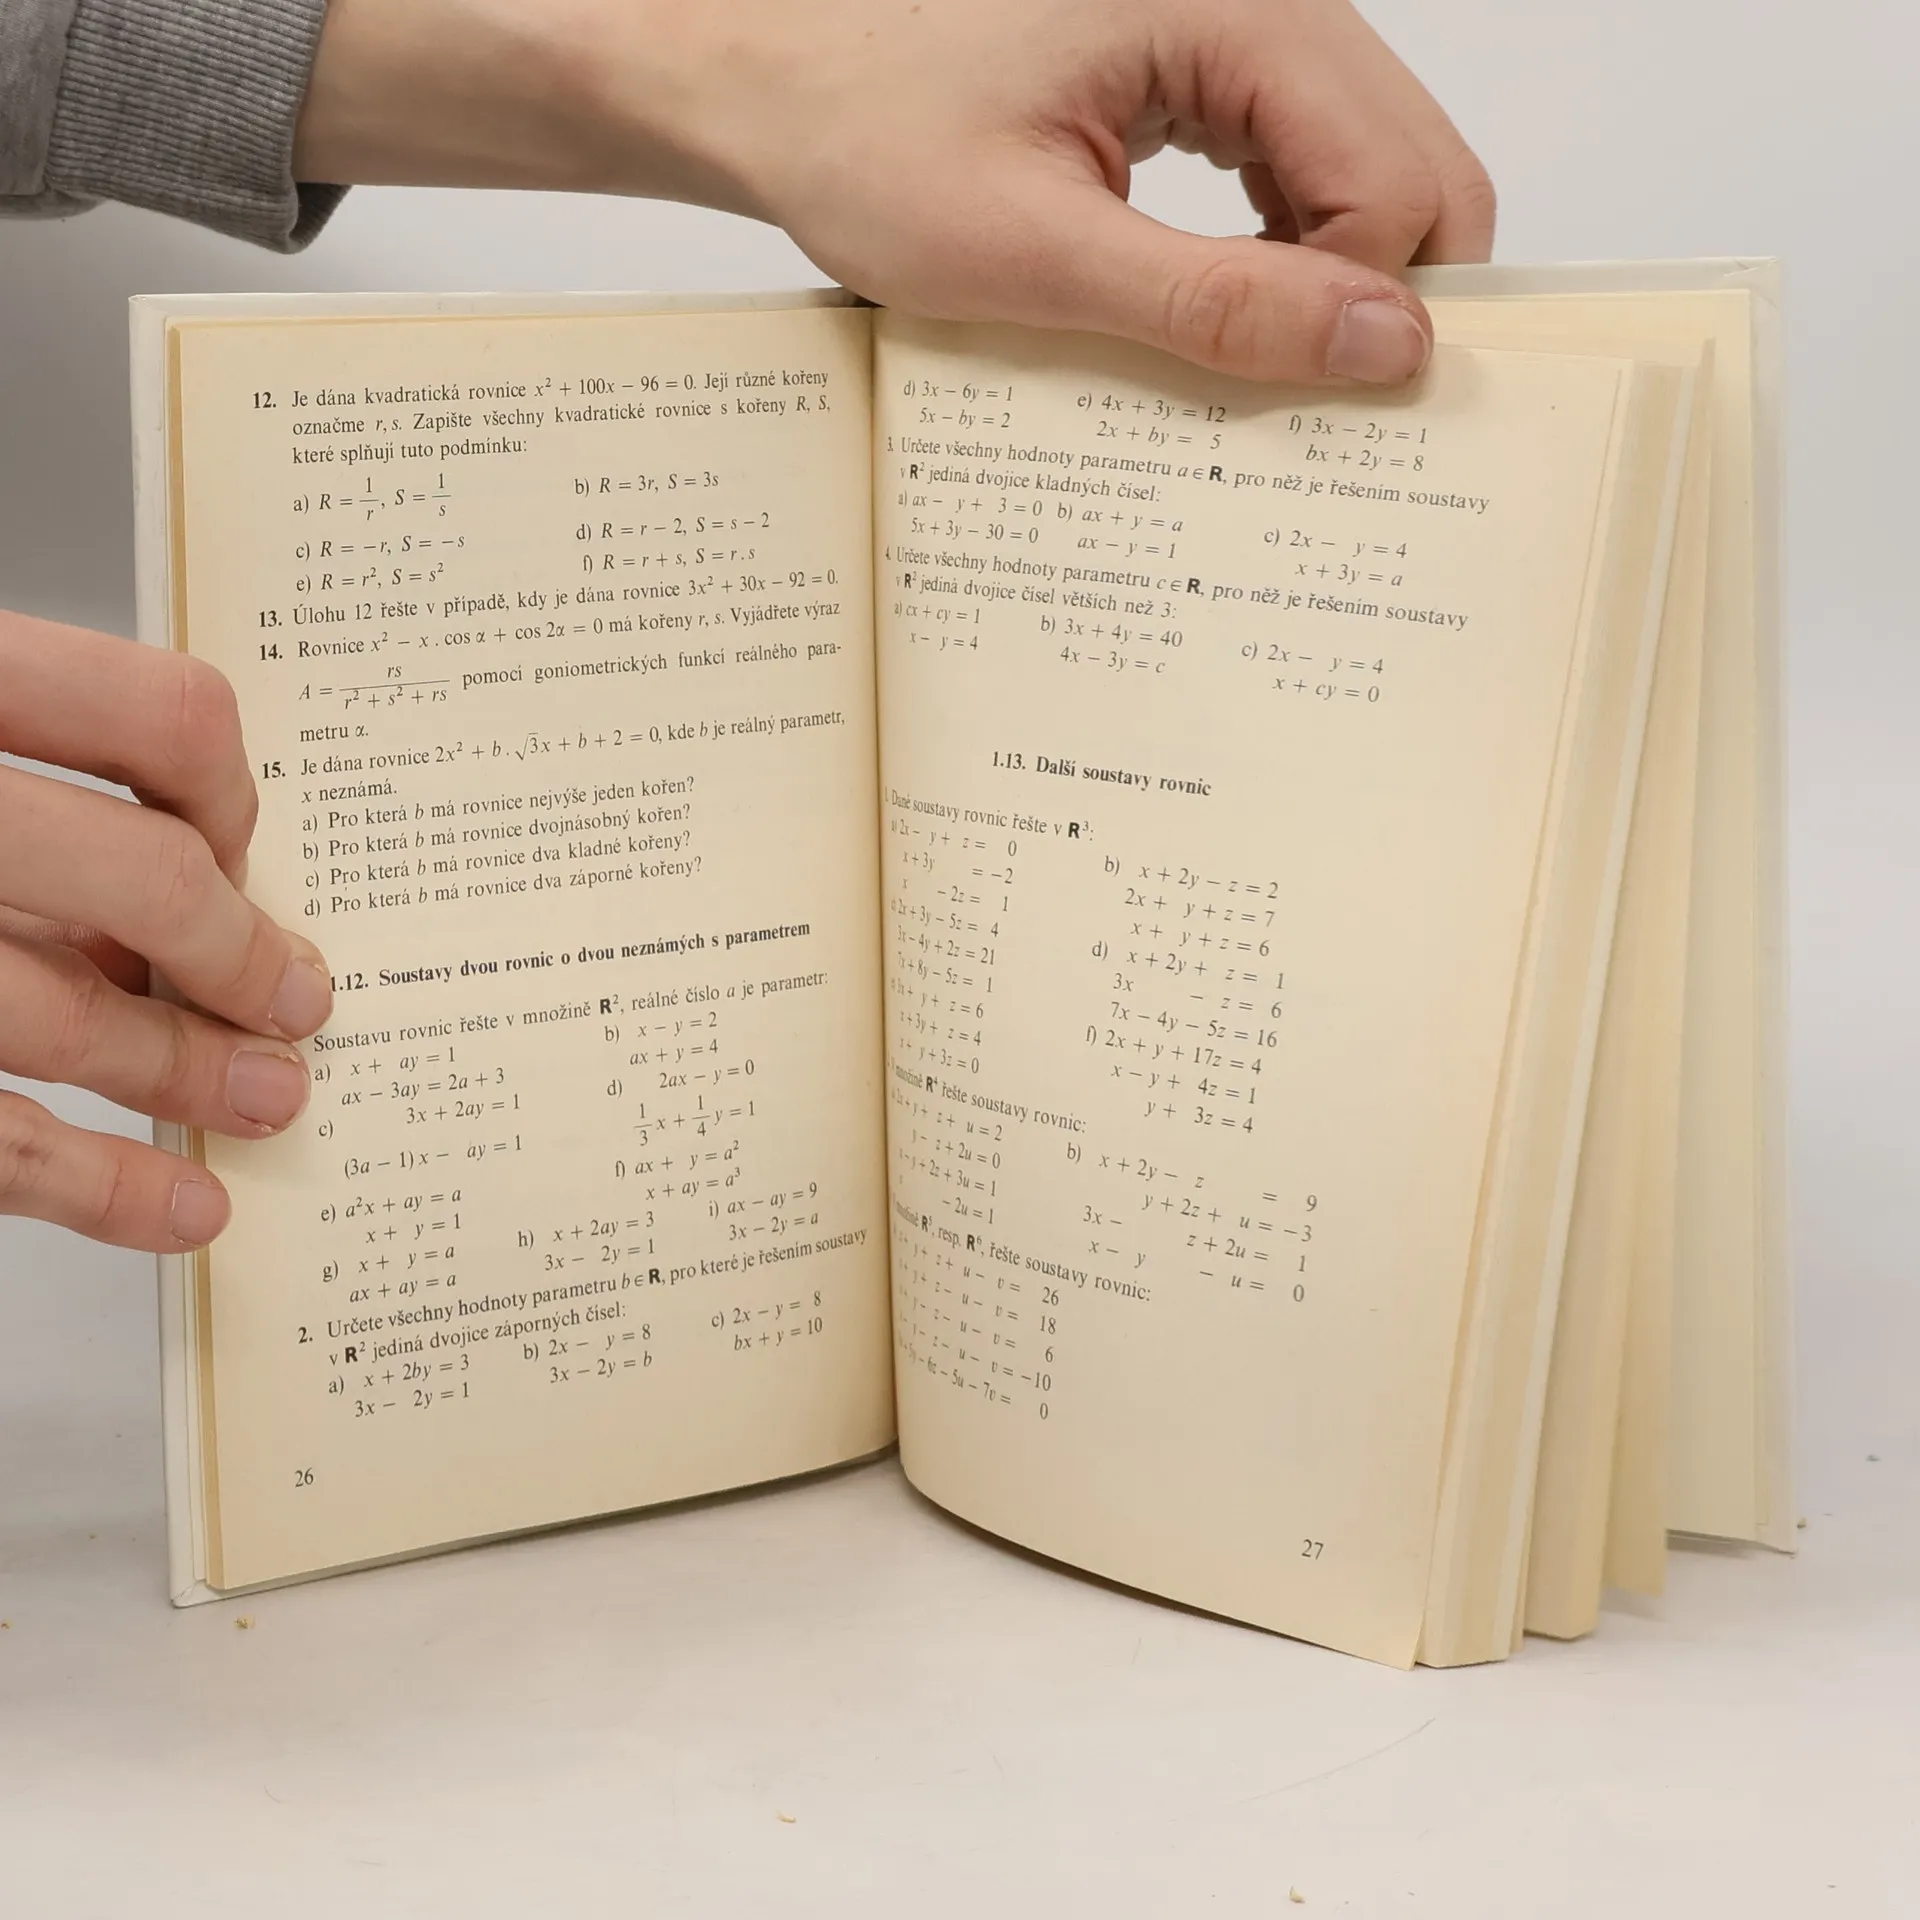 12. Je dána kvadratická rovnice x² + 100x − 96 = 0. Její různé kořeny
označme r, s. Zapište všechny kvadratické rovnice s kořeny R, S,
které splňují tuto podmínku:
a) R = 1/r, S = 1/s b) R = 3r, S = 3s
c) R = −r, S = −s d) R = r − 2, S = s − 2
e) R = r², S = s² f) R = r + s, S = r.s
13. Úlohu 12 řešte v případě, kdy je dána rovnice 3x² + 30x − 92 = 0.
14. Rovnice x² − x . cos α + cos 2α = 0 má kořeny r, s. Vyjádřete výraz
A = rs/(r² + s² + rs) pomocí goniometrických funkcí reálného para-
metru α.
15. Je dána rovnice 2x² + b . √3x + b + 2 = 0, kde b je reálný parametr,
x neznámá.
a) Pro která b má rovnice nejvýše jeden kořen?
b) Pro která b má rovnice dvojnásobný kořen?
c) Pro která b má rovnice dva kladné kořeny?
d) Pro která b má rovnice dva záporné kořeny?
1.12. Soustavy dvou rovnic o dvou neznámých s parametrem
Soustavu rovnic řešte v množině R², reálné číslo a je parametr:
a) x + ay = 1 b) x − y = 2
ax − 3ay = 2a + 3 ax + y = 4
c) 3x + 2ay = 1 d) 2ax − y = 0
(3a − 1) x − ay = 1 1/3 x + 1/4 y = 1
e) a²x + ay = a f) ax + y = a²
x + y = 1 x + ay = a³
g) x + y = a h) x + 2ay = 3 i) ax − ay = 9
ax + ay = a 3x − 2y = 1 3x − 2y = a
2. Určete všechny hodnoty parametru b ∈ R, pro které je řešením soustavy
v R² jediná dvojice záporných čísel:
a) x + 2by = 3 b) 2x − y = 8 c) 2x − y = 8
3x − 2y = 1 3x − 2y = b bx + y = 10
26
d) 3x − 6y = 1 e) 4x + 3y = 12 f) 3x − 2y = 1
5x − by = 2 2x + by = 5 bx + 2y = 8
3. Určete všechny hodnoty parametru a ∈ R, pro něž je řešením soustavy
v R² jediná dvojice kladných čísel:
a) ax − y + 3 = 0 b) ax + y = a c) 2x − y = 4
5x + 3y − 30 = 0 ax − y = 1 x + 3y = a
4. Určete všechny hodnoty parametru c ∈ R, pro něž je řešením soustavy
v R² jediná dvojice čísel větších než 3:
a) cx + cy = 1 b) 3x + 4y = 40 c) 2x − y = 4
x − y = 4 4x − 3y = c x + cy = 0
1.13. Další soustavy rovnic
1. Dané soustavy rovnic řešte v R³:
a) 2x − y + z = 0 b) x + 2y − z = 2
x + 3y = −2 2x + y + z = 7
x − 2z = 1 x + y + z = 6
c) 2x + 3y − 5z = 4 d) x + 2y + z = 1
3x − 4y + 2z = 21 3x − z = 6
7x + 8y − 5z = 1 7x − 4y − 5z = 16
e) 3x + y + z = 6 f) 2x + y + 17z = 4
x + 3y + z = 4 x − y + 4z = 1
x + y + 3z = 0 y + 3z = 4
množině R⁴ řešte soustavy rovnic:
2x + y + z + u = 2 b) x + 2y − z = 9
y − z + 2u = 0 y + 2z + u = −3
x − y + 2z + 3u = 1 3x − z + 2u = 1
− 2u = 1 x − y − u = 0
množině R⁵, resp. R⁶, řešte soustavy rovnic:
y + z + u − v = 26
y + z − u − v = 18
y − z − u − v = 6
y − z − u − v = −10
− 6z − 5u − 7v = 0
27